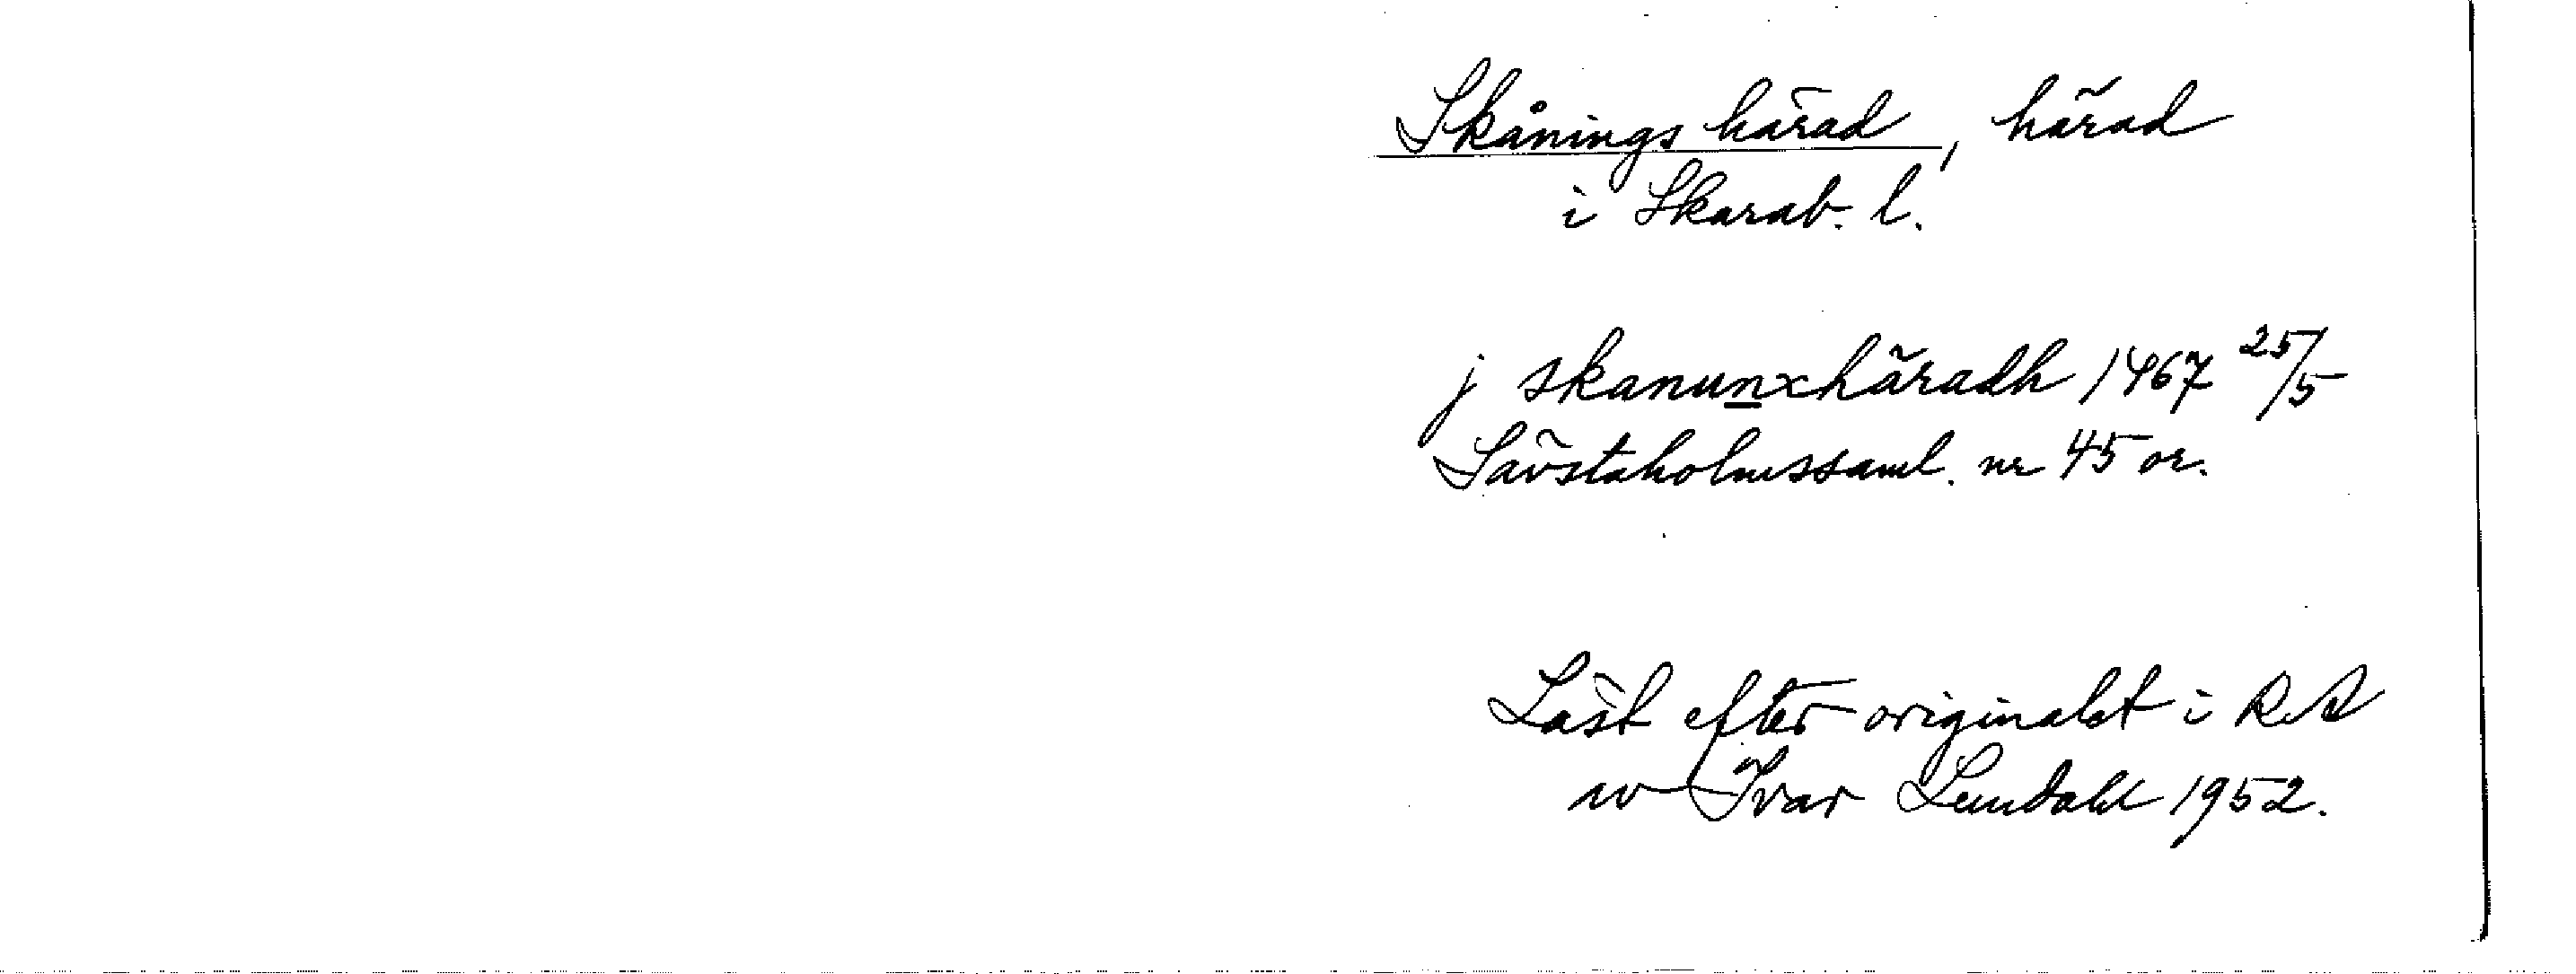 Skånings härad, härad
i Skarab. l.
j skanunxhäradh 1467 25/5
Sävstaholmssaml. nr 45 or.
Läst efter originalet i RA
av Ivar Lundahl 1952.